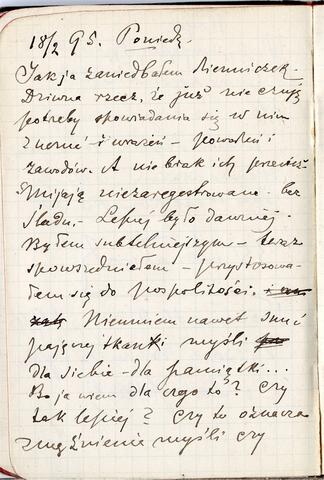 18/2 95. Poniedz.
Jak ja zaniedbałem dzienniczek.
Dziwna rzecz, że już nie czuję
potrzeby spowiadania się w nim
z wrażeń - powodzeń i
zawodów. A nie brak ich przecież.
Mijają niezaregestrowane bez
śladu. - Lepiej było dawniej.
Byłem subtelniejszym - teraz
spowszedniałem - przystosowa-
łem się do pospolitości.
Nie umiem nawet snuć
pajęczej tkanki myśli
dla siebie - dla pamiątki...
Bo ja wiem dla czego to? Czy
tak lepiej? Czy to oznacza
zmężnienie myśli czy